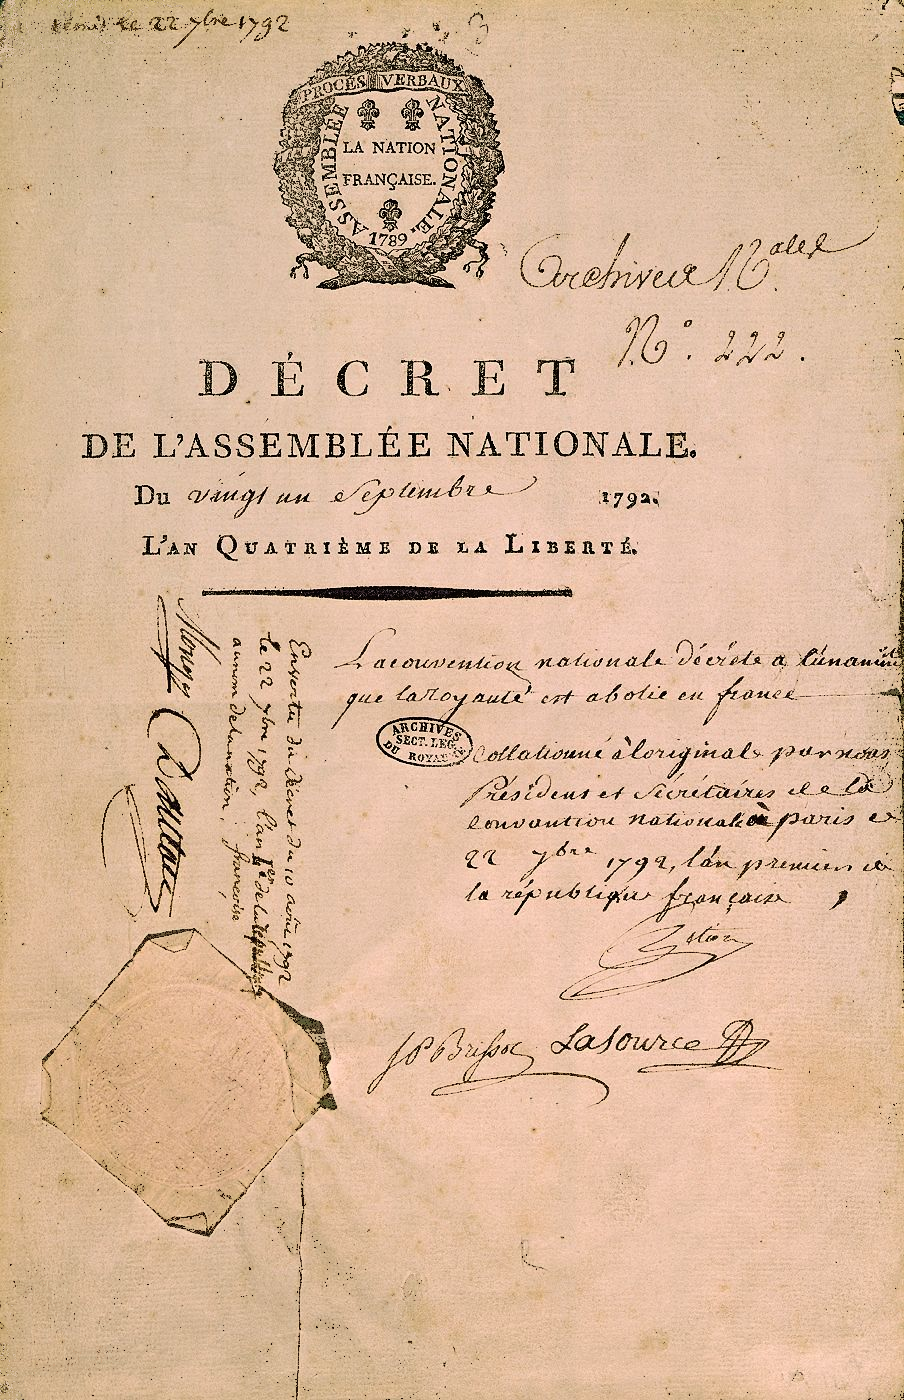 remis le 22 7bre 1792
3
PROCÈS VERBAUX
ASSEMBLÉE NATIONALE.
LA NATION
FRANÇAISE.
1789
Archives N.ales
N.° 222.
DÉCRET
DE L'ASSEMBLÉE NATIONALE.
Du vingt un Septembre 1792.
L'AN QUATRIÈME DE LA LIBERTÉ.
La convention nationale décrète a l'unanimité
que la Royauté est abolie en france
ARCHIVES
SECT. LEG.
DU ROYAUME
Collationné à l'original par nous
Présidens et Sécrétaires de la
convention nationale à paris le
22 7bre 1792, l'an premier de
la république françaisse
Petion
JP Brissot Lasource
En vertu du Décret du 10 août 1792
le 22 7bre 1792 l'an 1er de la République
au nom de la nation, françoise
Monge
Danton